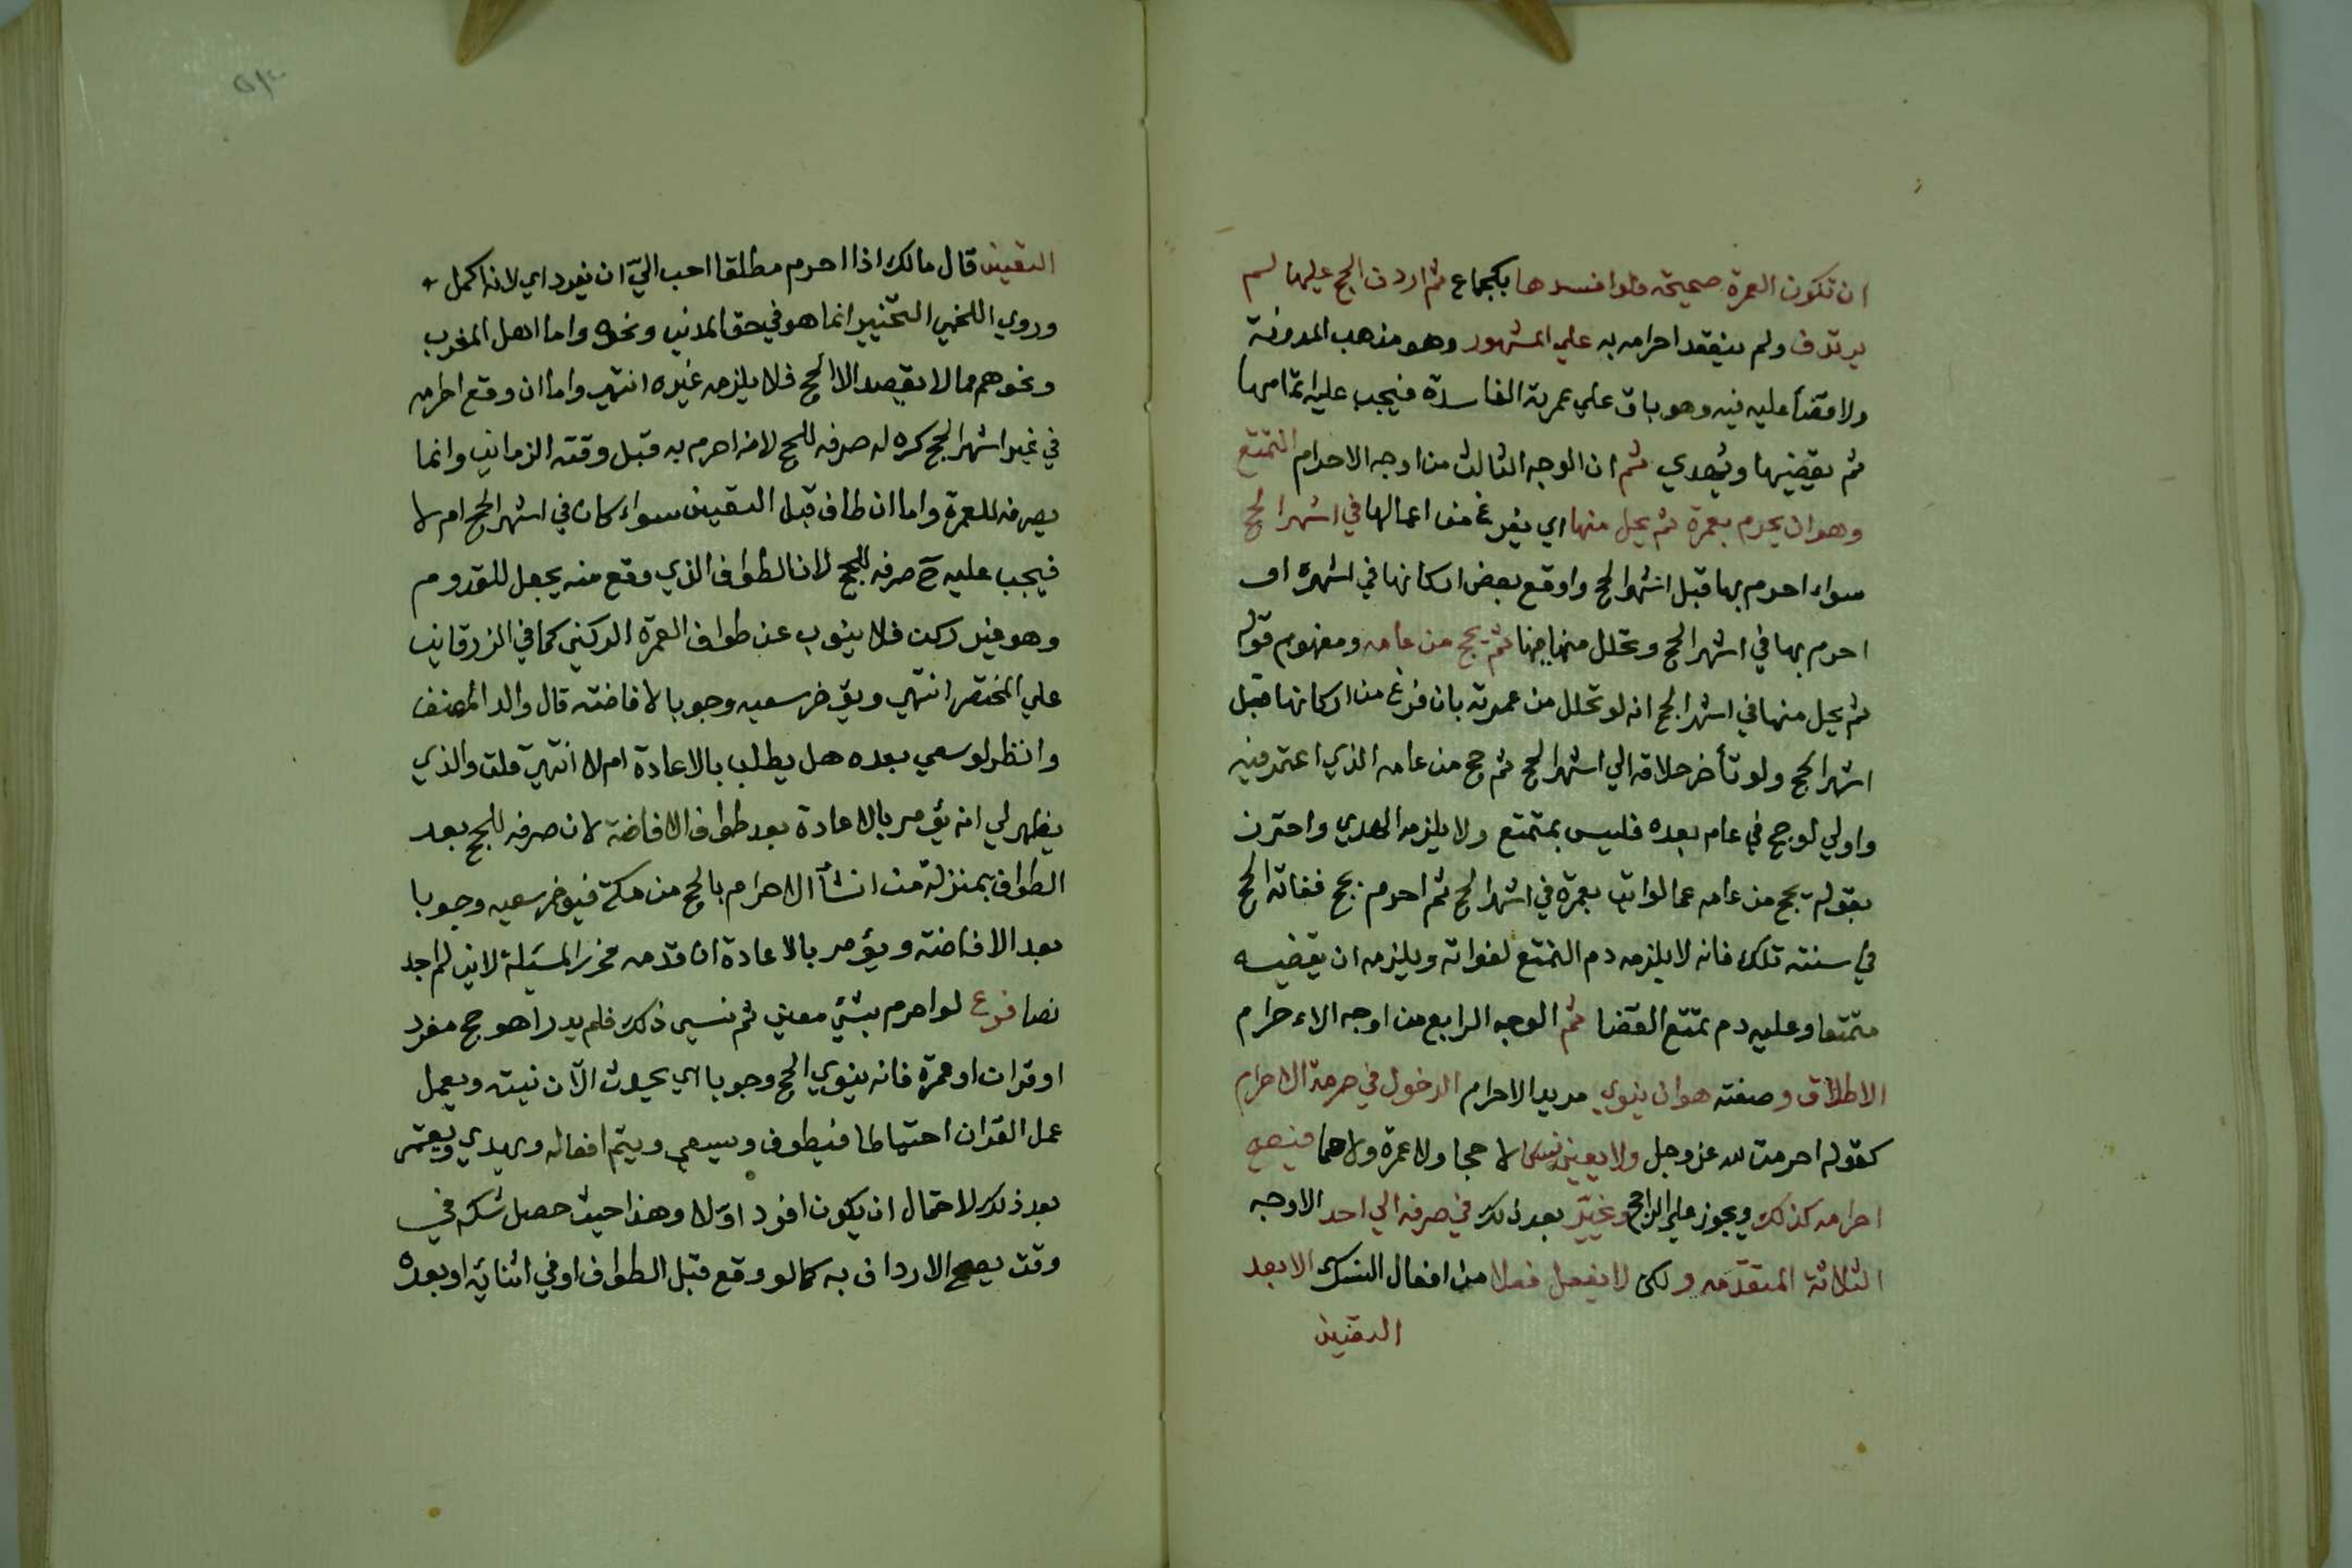 ان تكون العمرة صحيحة فلو افسدها بكجماع ثم اردف الحج عليها لم
يرتدف ولم ينعقد احرامه به علي المشهور وهو مذهب المدونة
ولا قضأ عليه فيه وهو باق علي عمرته الفاسدة فيجب عليه اتمامها
ثم يقضيها ويهدي ثم ان الوجه الثالث من اوجه الاحرام التمتع
وهو ان يحرم بعمرة ثم يحل منها اي يفرغ من اعمالها في اشهر الحج
سواء احرم بها قبل اشهر الحج واوقع بعض اركانها في اشهره او
احرم بها في اشهر الحج وتحلل منها فيها ثم يحج من عامه ومفهوم قوله
ثم يحل منها في اشهر الحج انه لو تحلل من عمرته بان فرغ من اركانها قبل
اشهر الحج ولو تأخر حلاقه الي اشهر الحج ثم حج من عامه الذي اعتمر فيه
واولي لو حج في عام بعده فليس بمتمتع ولا يلزمه الهدي واحترز
بقوله يحج من عامه عما لو اتي بعمرة في اشهر الحج ثم احرم بحج ففاته الحج
في سنته تلك فانه لا يلزمه دم التمتع لفواته ويلزمه ان يقضيه
متمتعا وعليه دم تمتع القضا ثم الوجه الرابع من اوجه الاحرام
الاطلاق وصفته هو ان ينوي مريد الاحرام الدخول في حرمة الاحرام
كقوله احرمت لله عز وجل ولا يعين نسكا لا حجا ولا عمرة ولا هما فيصح
احرامه كذلك ويجوز علي الراجح وخيّر بعد ذلك في صرفه الي احد الاوجه
الثلاثة المتقدّمه ولكن لا يفعل فعلا من افعال النسك الا بعد
التعيين
التعيين قال مالك اذا احرم مطلقا احب اليّ ان يفرد اي لانه اكمل
وروي اللخمي التخيير انما هو في حق المدني ونحوه واما اهل المغرب
ونحوهم مما لا يقصد الا الحج فلا يلزمه غيره انتهي واما ان وقع احرامه
في غير اشهر الحج كره له صرفه للحج لانه احرم به قبل وقته الزماني وانما
يصرفه للعمرة واما ان طاف قبل التعيين سواء كان في اشهر الحج ام لا
فيجب عليه ح صرفه للحج لان الطواف الذي وقع منه يجعل للقدوم
وهو غير ركن فلا ينوب عن طواف العمرة الركني كما في الزرقاني
علي المختصر انتهي ويؤخر سعيه وجوبا لافاضته قال والد المصنف
وانظر لو سعي بعده هل يطلب بالاعادة ام لا انتهي قلت والذي
يظهر لي انه يؤمر بالاعادة بعد طواف الافاضة لان صرفه للحج بعد
الطواف بمنزلة من انشأ الاحرام بالحج من مكة فيؤخر سعيه وجوبا
بعد الافاضة ويؤمر بالاعادة ان قدمه فحرر المسئلة لاني لم اجد
نصا فرع لو احرم بشئ معين ثم نسي ذلك فلم يدر اهو حج مفرد
او قران او عمرة فانه ينوي الحج وجوبا اي يحدث الآن نيته ويعمل
عمل القران احتياطا فيطوف ويسعي ويتم افعاله ويهدي ويعتمر
بعد ذلك لاحتمال ان يكون افرد اوّلا وهذا حيث حصل شكه في
وقت يصح الارداف به كما لو وقع قبل الطواف او في اثنائه او بعده